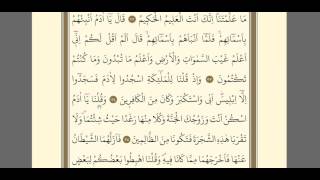 مَا عَلَّمْتَنَا اِنَّكَ اَنْتَ الْعَلِيمُ الْحَكِيمُ ﴿٣٢﴾ قَالَ يَا اٰدَمُ اَنْبِئْهُمْ
بِاَسْمَائِهِمْ فَلَمَّا اَنْبَاَهُمْ بِاَسْمَائِهِمْ قَالَ اَلَمْ اَقُلْ لَكُمْ اِنِّي
اَعْلَمُ غَيْبَ السَّمٰوَاتِ وَالْاَرْضِ وَاَعْلَمُ مَا تُبْدُونَ وَمَا كُنْتُمْ
تَكْتُمُونَ ﴿٣٣﴾ وَاِذْ قُلْنَا لِلْمَلٰئِكَةِ اسْجُدُوا لِاٰدَمَ فَسَجَدُوا
اِلَّا اِبْلِيسَ اَبٰى وَاسْتَكْبَرَ وَكَانَ مِنَ الْكَافِرِينَ ﴿٣٤﴾ وَقُلْنَا يَا اٰدَمُ
اسْكُنْ اَنْتَ وَزَوْجُكَ الْجَنَّةَ وَكُلَا مِنْهَا رَغَدًا حَيْثُ شِئْتُمَا وَلَا
تَقْرَبَا هٰذِهِ الشَّجَرَةَ فَتَكُونَا مِنَ الظَّالِمِينَ ﴿٣٥﴾ فَاَزَلَّهُمَا الشَّيْطَانُ
عَنْهَا فَاَخْرَجَهُمَا مِمَّا كَانَا فِيهِ وَقُلْنَا اهْبِطُوا بَعْضُكُمْ لِبَعْضٍ